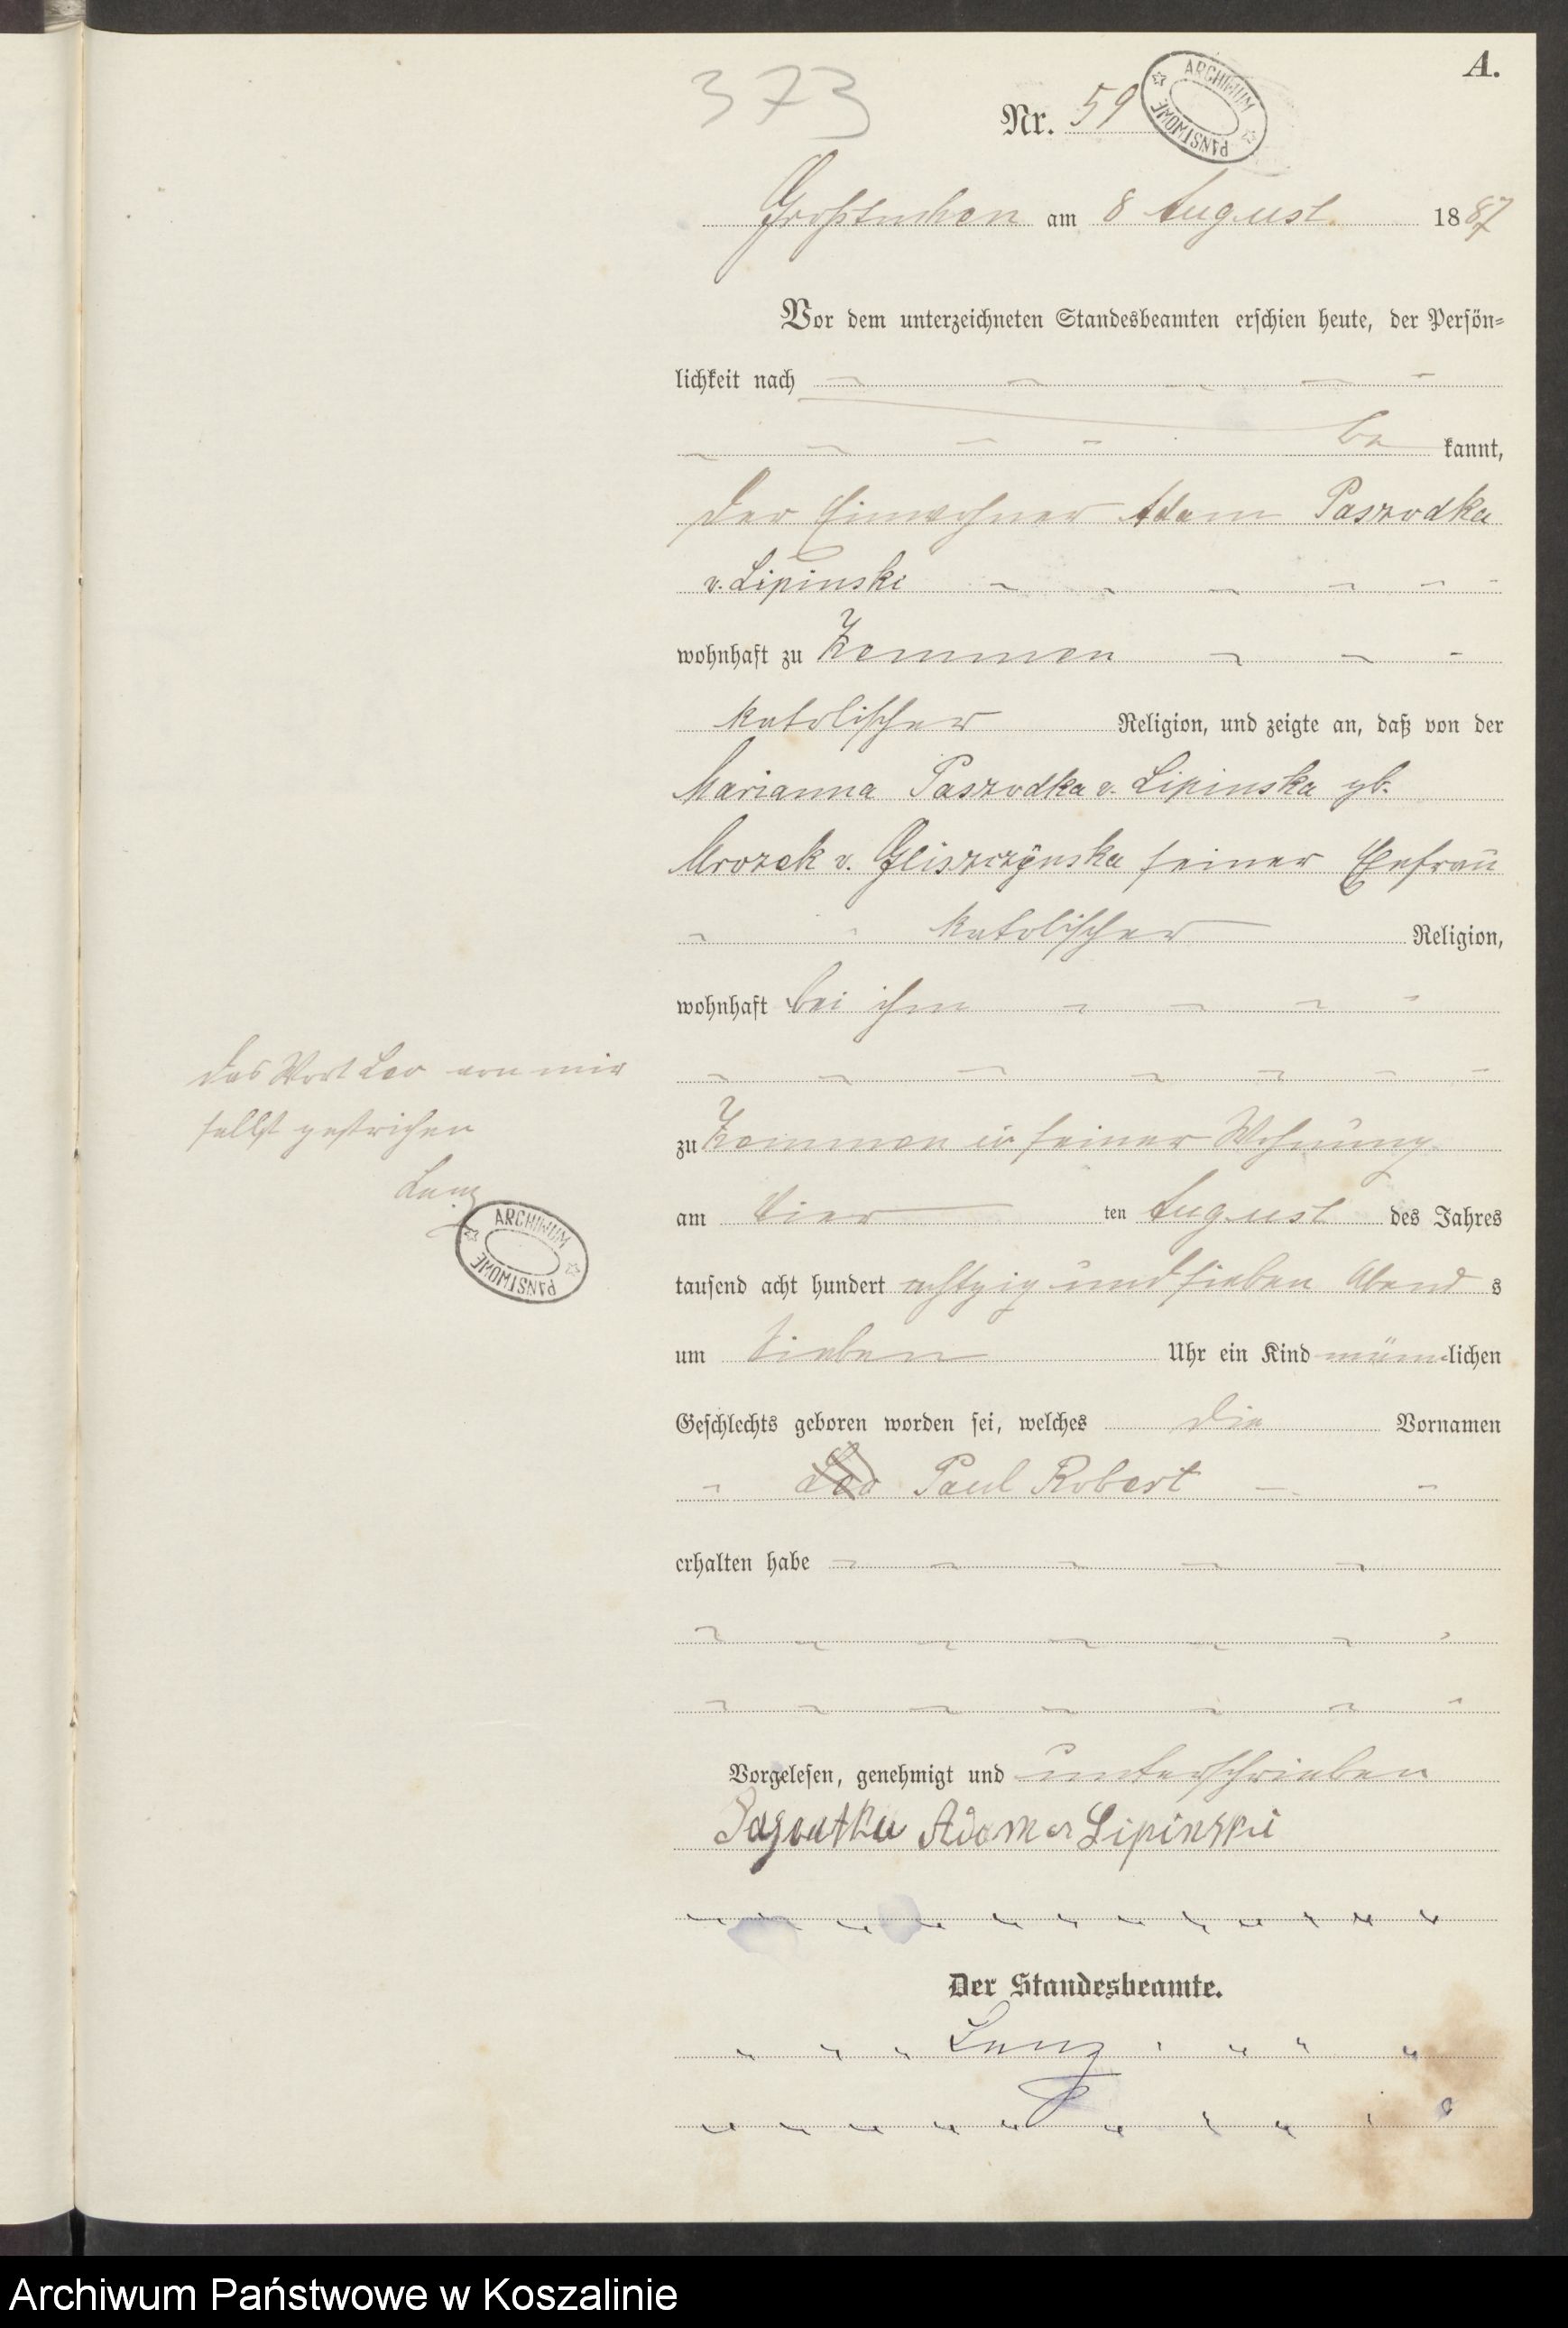 A.
373
Nr. 59
ARCHIWUM PAŃSTWOWE
Großtuchen am 8 August 1887
Vor dem unterzeichneten Standesbeamten erschien heute, der Persön-
lichkeit nach
be kannt,
der Einwohner Adam Paszodka
v. Lipinski
wohnhaft zu Zemmen
katolischer Religion, und zeigte an, daß von der
Marianna Paszodka v. Lipinska gb.
Mrozek v. Gliszczÿnska seiner Ehefrau
katolischer Religion,
wohnhaft bei ihm
zu Zemmen in seiner Wohnung
am vier ten August des Jahres
tausend acht hundert achtzig und sieben Abend s
um sieben Uhr ein Kind männ-lichen
Geschlechts geboren worden sei, welches die Vornamen
Leo Paul Robert
erhalten habe
Vorgelesen, genehmigt und unterschrieben
Adam v Lipinski
Der Standesbeamte.
Lenz
das Wort Leo von mir
selbst gestrichen
Lenz
ARCHIWUM PAŃSTWOWE
Archiwum Państwowe w Koszalinie